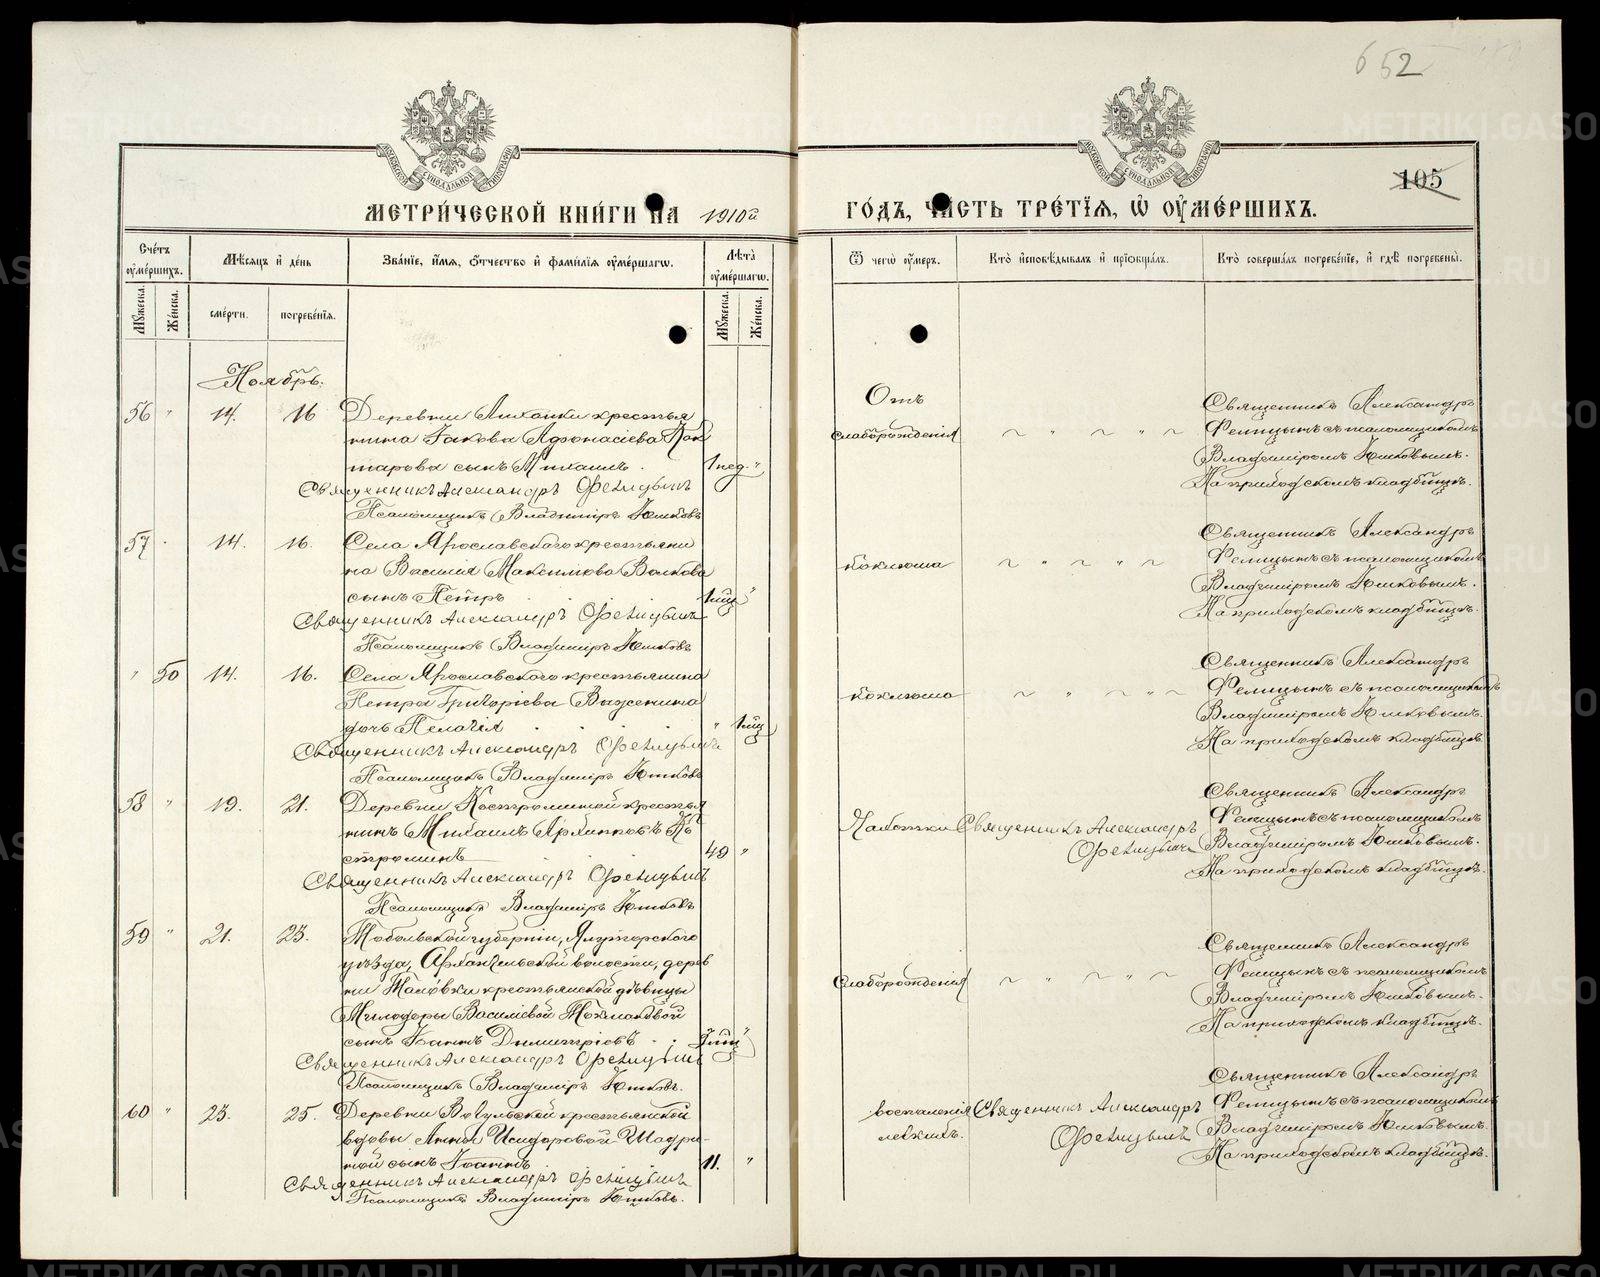 652
105
МОСКОВСКОЙ СѴНОДАЛЬНОЙ ТИПОГРАФІИ
МОСКОВСКОЙ СѴНОДАЛЬНОЙ ТИПОГРАФІИ
МЕТРИ́ЧЕСКОЙ КНИ́ГИ НА 1910й
ГО́ДЪ, ЧА́СТЬ ТРЕ́ТІѦ, Ѡ҆ ОУ҆МЕ́РШИХЪ.
Сче́тъ оу҆ме́ршихъ.
Мѣ́сѧцъ и҆ де́нь
Зва́нїе, и҆́мѧ, ѻ҆́тчество и҆ фами́лїѧ оу҆ме́ршагѡ.
Лѣ́та оу҆ме́ршагѡ.
Ѿ чегѡ̀ оу҆́меръ.
Кто̀ и҆сповѣ́дывалъ и҆ прїѡбща́лъ.
Кто̀ соверша́лъ погребе́нїе, и҆ гдѣ̀ погребены̀.
Мꙋ́жеска.
Же́нска.
сме́рти.
погребе́нїѧ.
Мꙋ́жеска.
Же́нска.
Ноябрь.
56 " 14. 16 Деревни крестья
нина Іакова Афонасіева Кок
шарова сынъ Михаилъ. 1 нед. "
Священникъ Александръ Фелицынъ
Псаломщикъ Владиміръ Юшковъ
Отъ
слаборожденія
Священникъ Александръ
Фелицынъ съ псаломщикомъ
Владиміромъ Юшковымъ.
На приходскомъ кладбищѣ.
57 14. 16. Села Ярославскаго крестьяни
на Василія Максимова Волкова
сынъ Петръ 1 мц "
Священникъ Александръ Фелицынъ
Псаломщикъ Владиміръ Юшковъ
коклюша
Священникъ Александръ
Фелицынъ съ псаломщикомъ
Владиміромъ Юшковымъ.
На приходскомъ кладбищѣ.
" 50 14. 16. Села Ярославскаго крестьянина
Петра Григоріева Важенина
дочь Пелагія " 1 мц
Священникъ Александръ Фелицынъ
Псаломщикъ Владиміръ Юшковъ
коклюша
Священникъ Александръ
Фелицынъ съ псаломщикомъ
Владиміромъ Юшковымъ.
На приходскомъ кладбищѣ.
58 " 19. 21. Деревни Костроминой крестья
нинъ Михаилъ Архиповъ Ко
строминъ 49 "
Священникъ Александръ Фелицынъ
Псаломщикъ Владиміръ Юшковъ
Чахотки Священникъ Александръ
Фелицынъ
Священникъ Александръ
Фелицынъ съ псаломщикомъ
Владиміромъ Юшковымъ.
На приходскомъ кладбищѣ.
59 " 21. 23. Тобольской губерніи, Ялуторскаго
уѣзда, Архангельской волости, дерев
ни крестьянской дѣвицы
Милодоры Василіевой
сынъ Іоаннъ Димитріевъ "
Священникъ Александръ Фелицынъ
Псаломщикъ Владиміръ Юшковъ.
слаборожденія
Священникъ Александръ
Фелицынъ съ псаломщикомъ
Владиміромъ Юшковымъ.
На приходскомъ кладбищѣ.
60 " 23. 25. Деревни Вогульской крестьянской
вдовы Анны Исидоровой Шадри-
ной сынъ Іоаннъ 11. "
Священникъ Александръ Фелицынъ
Псаломщикъ Владиміръ Юшковъ.
воспаленія Священникъ Александръ
легкихъ. Фелицынъ
Священникъ Александръ
Фелицынъ съ псаломщикомъ
Владиміромъ Юшковымъ.
На приходскомъ кладбищѣ.
METRIKI.GASO-URAL.RU